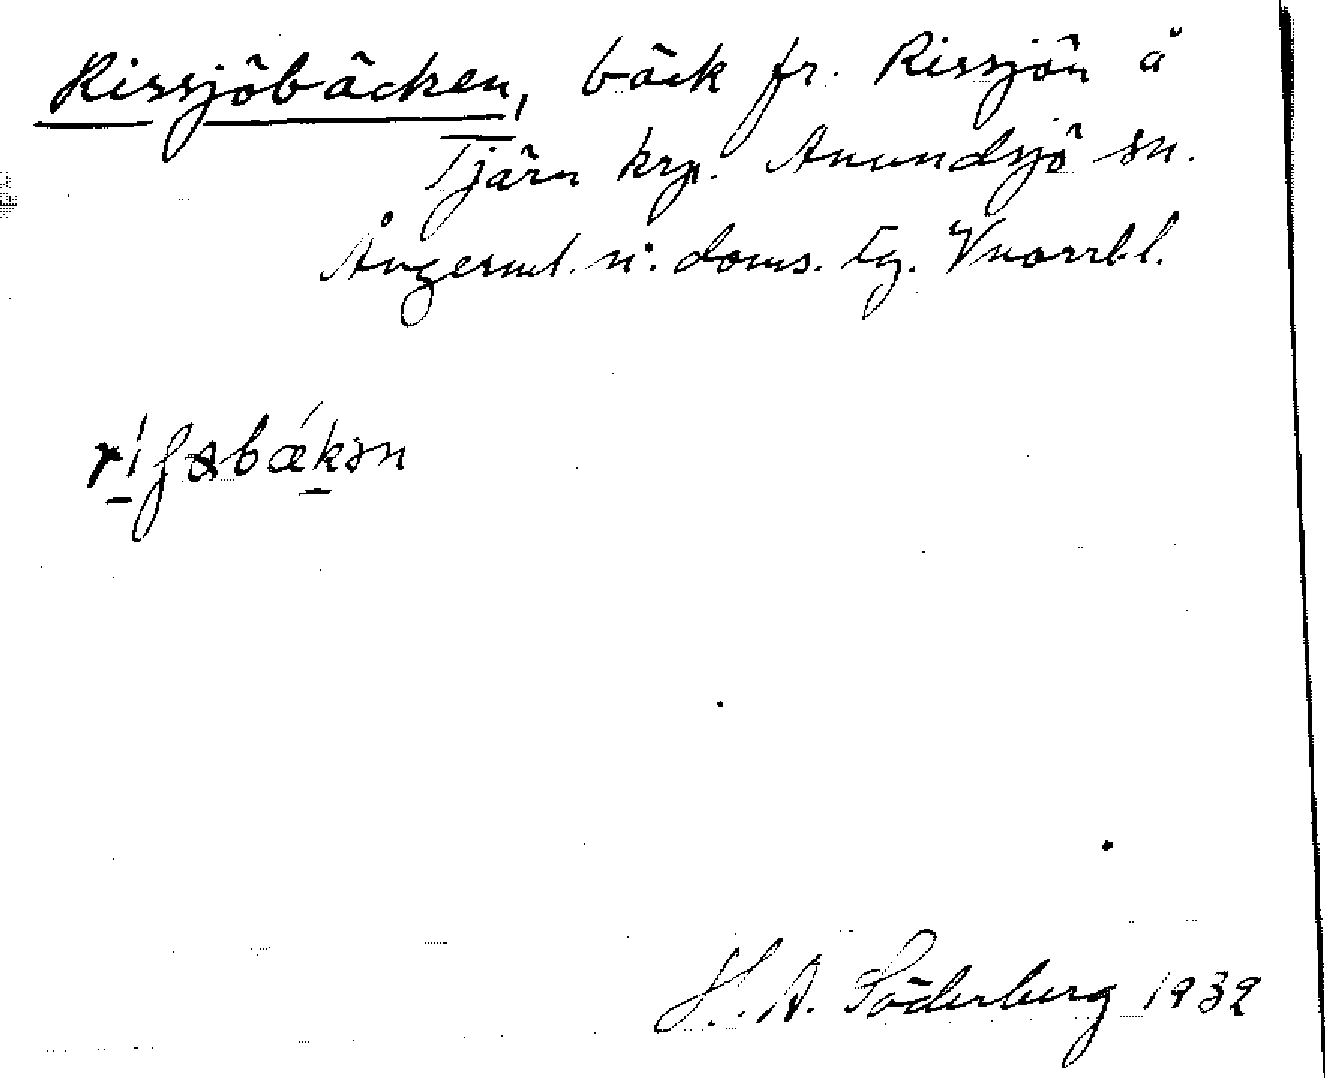 Rissjöbäcken, bäck fr. Rissjön å
Tjärn krp. Anundsjö sn.
Ångerml. n. doms. tg. Vnorrbl.
H. A. Söderberg 1932